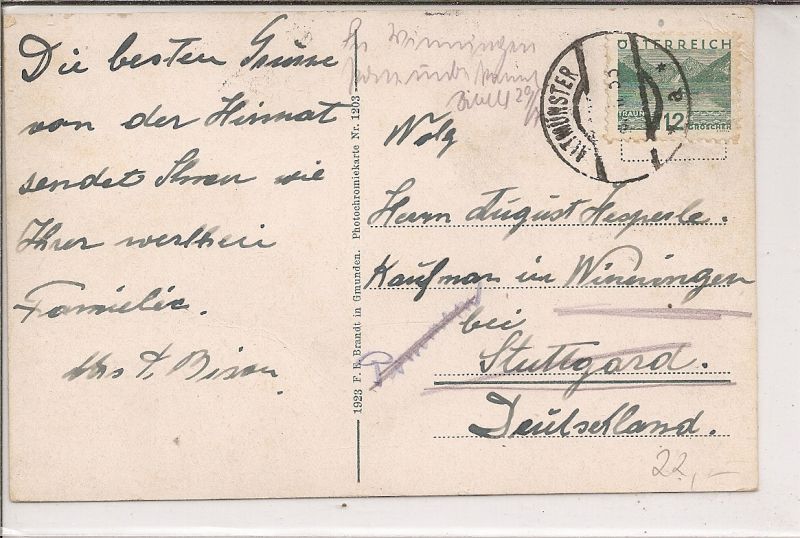 Die besten Grüsse
von der Heimat
sendet Ihnen wie
Ihrer werthen
Familie.
1923 F. E. Brandt in Gmunden. Photochromiekarte Nr. 1203
In Winningen
29/
ALTMÜNSTER
a
ÖSTERREICH
TRAUN
12 GROSCHEN
Wolg
Herrn August Hepperle.
Kaufman in Winningen
bei
Stuttgard.
Deutschland.
22,-